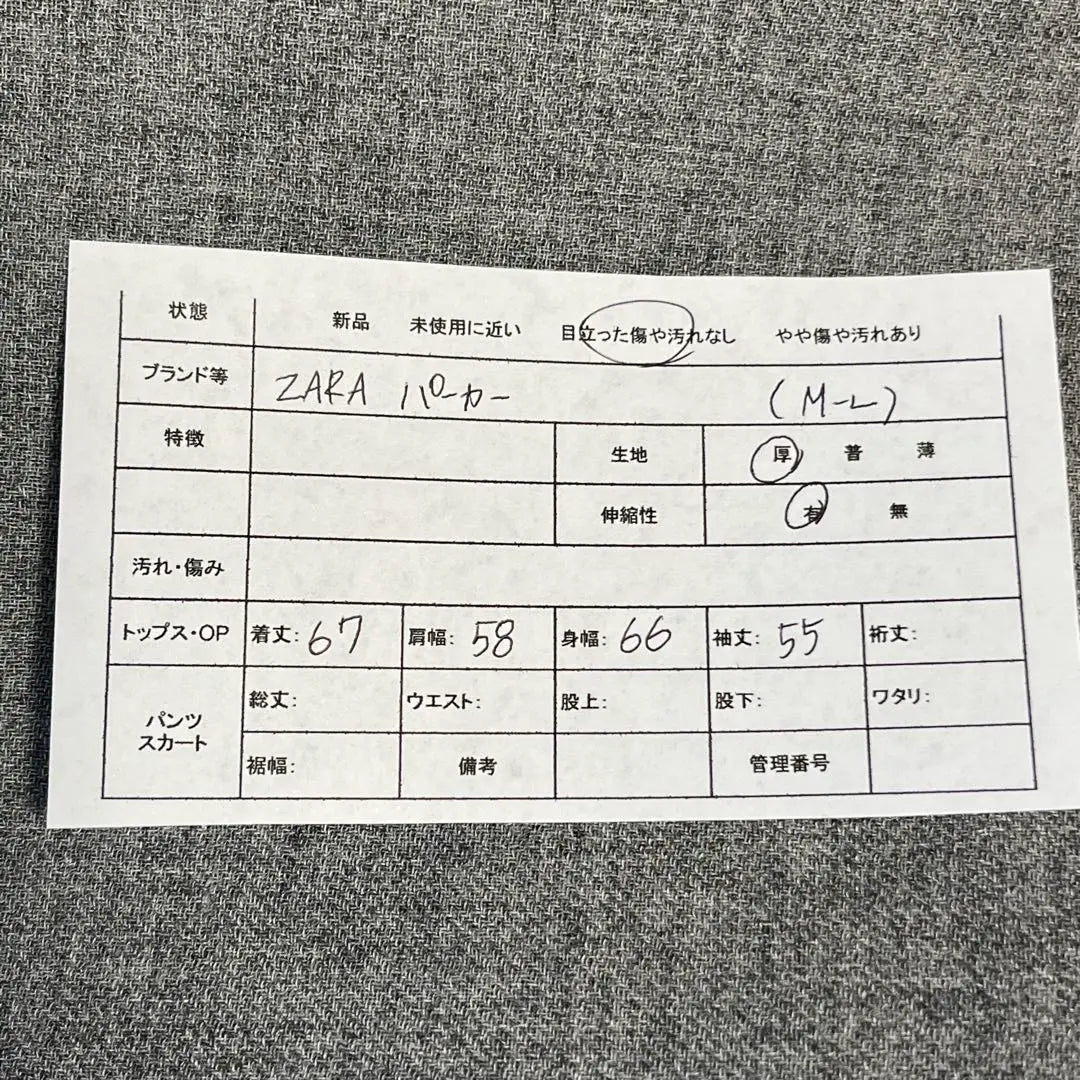 状態 新品 未使用に近い 目立った傷や汚れなし やや傷や汚れあり
ブランド等 ZARA パーカー (M-L)
特徴 生地 厚 普 薄
伸縮性 有 無
汚れ・傷み
トップス・OP 着丈: 67 肩幅: 58 身幅: 66 袖丈: 55 裄丈:
パンツ スカート 総丈: ウエスト: 股上: 股下: ワタリ:
裾幅: 備考 管理番号